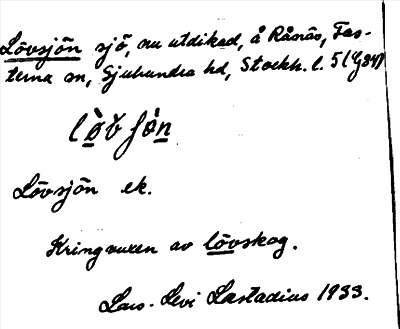 Lövsjön sjö, nu utdikad, å Rånäs, Fas-
terna sn, Sjuhundra hd, Stockh. l. 5 (
Lövsjön ek.
Kringvuxen av lövskog.
Lars-Levi Læstadius 1933.